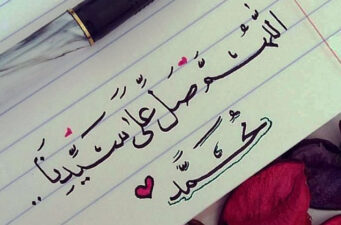 اللَّهُمَّ صَلِّ عَلَى سَيِّدِنَا..
مُحَمَّد